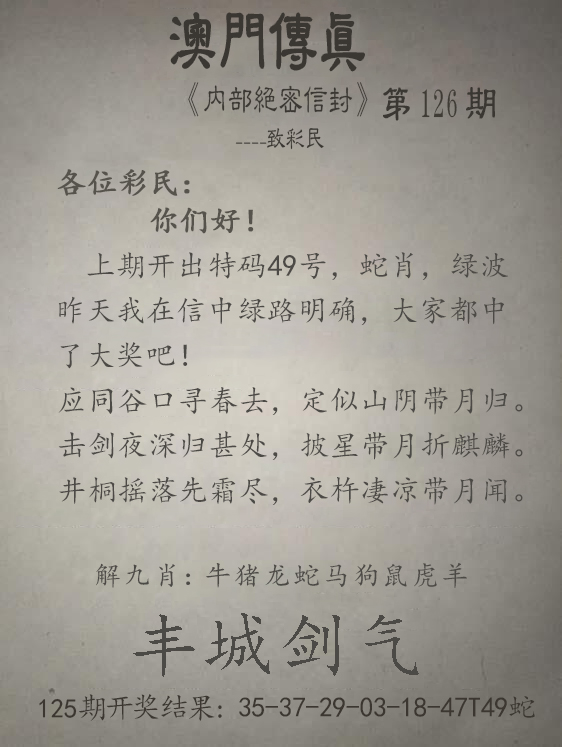 澳門傳真
《内部絕密信封》第126期
----致彩民
各位彩民：
你们好！
上期开出特码49号，蛇肖，绿波
昨天我在信中绿路明确，大家都中
了大奖吧！
应同谷口寻春去，定似山阴带月归。
击剑夜深归甚处，披星带月折麒麟。
井桐摇落先霜尽，衣杵凄凉带月闻。
解九肖：牛猪龙蛇马狗鼠虎羊
丰城剑气
125期开奖结果：35-37-29-03-18-47T49蛇